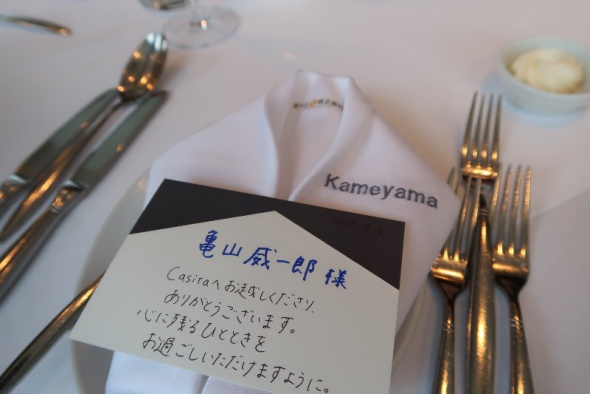 Kameyama
亀山威一郎様
Casitaへお越しくださり、
ありがとうございます。
心に残るひとときを
お過ごしいただけますように。